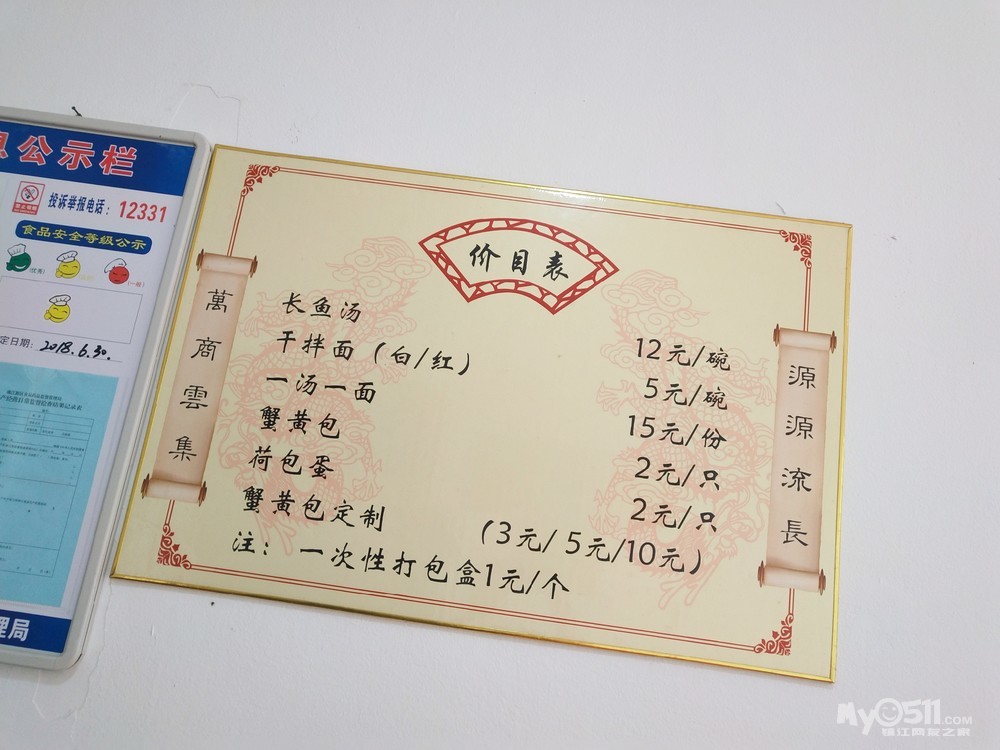 息公示栏
投诉举报电话：12331
食品安全等级公示
定日期：2018.6.30.
理局
价目表
萬商雲集
长鱼汤 12元/碗
干拌面（白/红） 5元/碗
一汤一面 15元/份
蟹黄包 2元/只
荷包蛋 2元/只
蟹黄包定制 （3元/5元/10元）
注：一次性打包盒1元/个
源源流長
My0511.COM
镇江网友之家